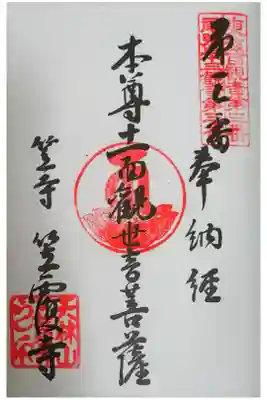 第三番
奉納經
本尊十一面觀世音菩薩
笠寺 笠覆寺